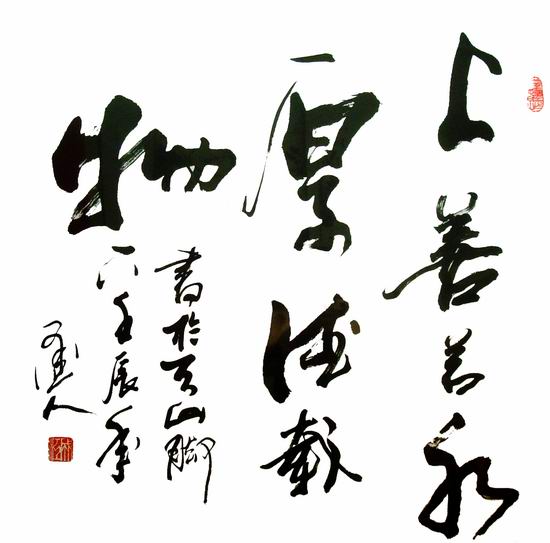 上善若水
厚德載
物
書於天山脚
下壬辰年
人